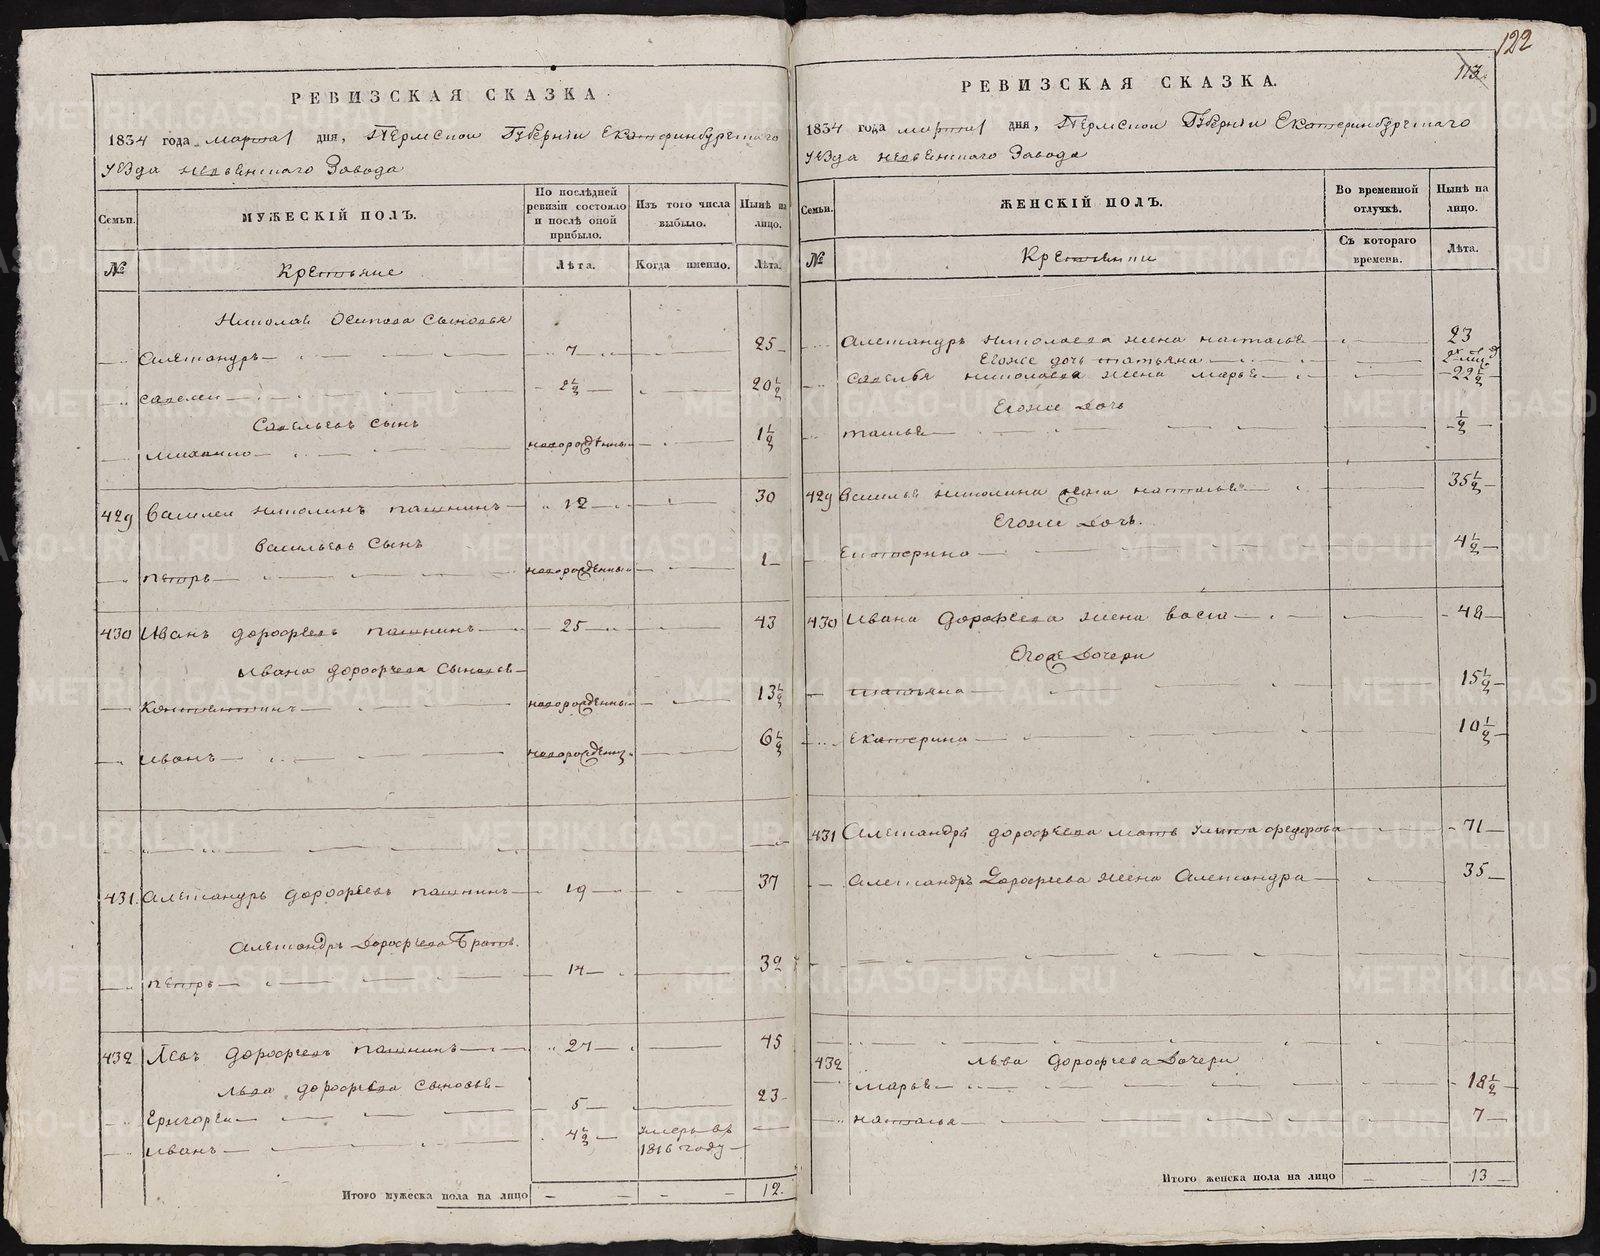 122
РЕВИЗСКАЯ СКАЗКА
1834 года марта 1 дня, Пермской Губерніи Екатеринбургскаго
уезда невьенскаго Завода
Семьи.
МУЖЕСКІЙ ПОЛЪ.
По послѣдней ревизіи состояло и послѣ оной прибыло.
Изъ того числа выбыло.
Нынѣ на лицо.
№
Крестьяне
Лѣта.
Когда именно.
Лѣта.
Николая Осипова Сыновья
Александръ 7 25
савелеи 2½ 20½
Савельевъ Сынъ
михаило новорожденны 1½
429 Василеи никонинъ пашнинъ 12 30
Васильевъ Сынъ
петръ новорожденны 1
430 Иванъ дорофеевъ пашнинъ 25 43
Ивана дорофеева Сыновья
Константинъ новорожденны 13½
иванъ новорожденны 6½
431. Александръ дорофеевъ пашнинъ 19 37
Александръ Дорофеева Братъ.
петръ 14 32
432 Левъ дорофеевъ пашнинъ 27 45
льва дорофеева Сыновья
Григореи 5 23
иванъ 4½ умеръ въ 1816 году
Итого мужеска пола на лицо 12.
113
РЕВИЗСКАЯ СКАЗКА.
1834 года марта 1 дня, Пермской Губерніи Екатеринбургскаго
уезда невьенскаго Завода
Семьи.
ЖЕНСКІЙ ПОЛЪ.
Во временной отлучкѣ.
Нынѣ на лицо.
№
Крестьянки
Съ котораго времени.
Лѣта.
Александръ николаева жена наталья 23
Егоже дочь татьяна
Савелья николаева жена марья 22½
Егоже Дочь
½
429 Василья никонина жена наталья 35½
Егоже Дочь.
Екатерина 4½
430 Ивана дорофеева жена васса 48
Егоже Дочери
татьяна 15½
Екатерина 10½
431 Александра дорофеева мать улита федорова 71
Александръ Дорофеева жена Александра 35
432 льва дорофеева Дочери
марья 18½
наталья 7
Итого женска пола на лицо 13
METRIKI.GASO-URAL.RU